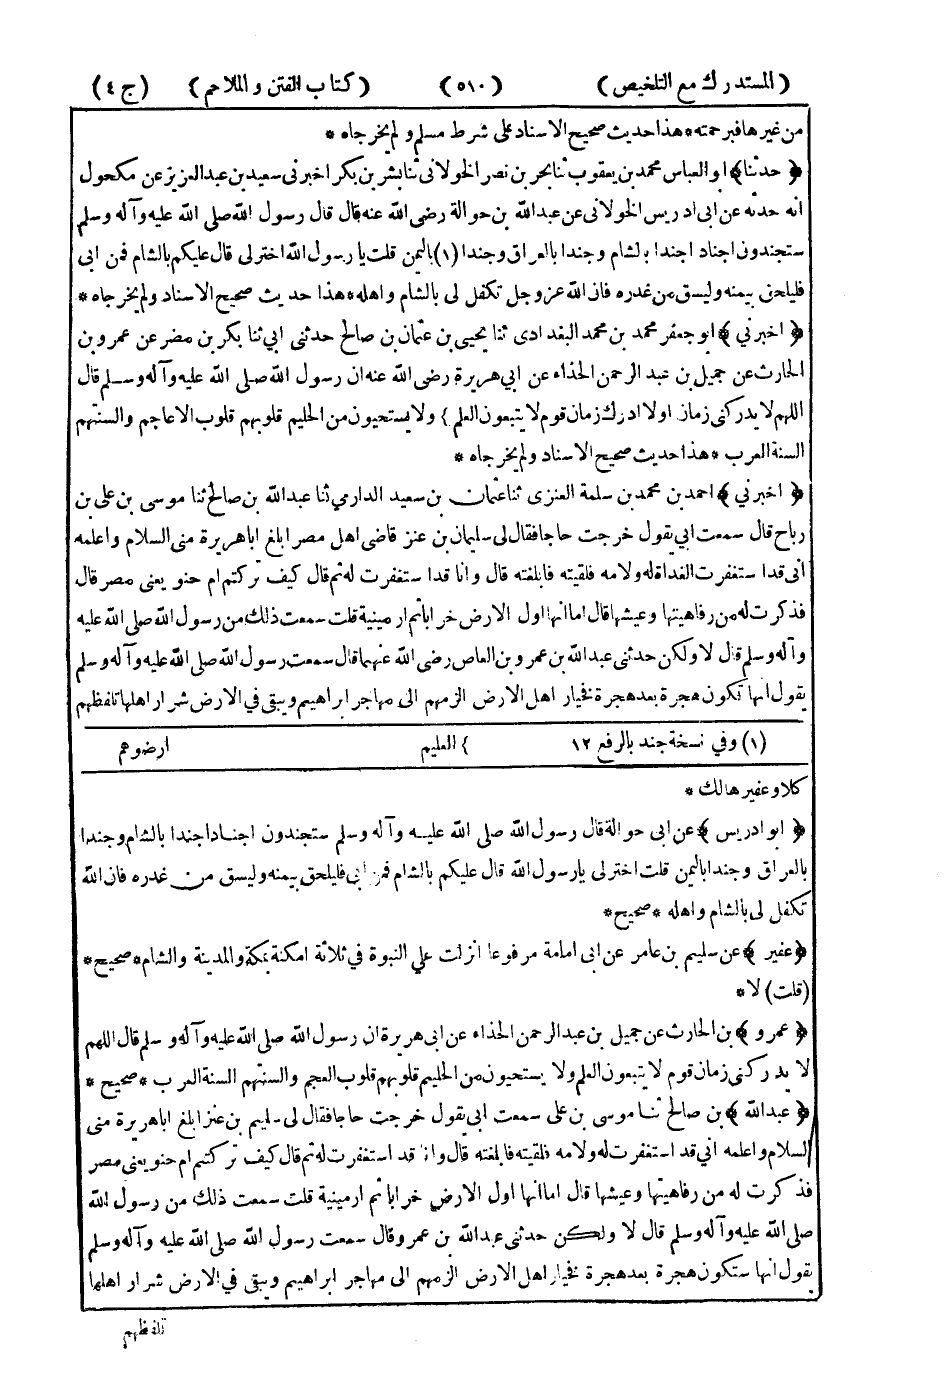 (المستدرك مع التلخيص) (٥١٠) (كتاب الفتن والملاحم) (ج ٤)
من غيرها فبرحمته * هذا حديث صحيح الاسناد على شرط مسلم ولم يخرجاه *
﴿ حدثنا ﴾ ابو العباس محمد بن يعقوب ثنا بحر بن نصر الخولانى ثنا بشر بن بكر اخبرنى سعيد بن عبد العزيز عن مكحول
انه حدثه عن ابى ادريس الخولانى عن عبد الله بن حوالة رضى الله عنه قال قال رسول الله صلى الله عليه وآله وسلم
ستجندون اجناد اجندا بالشام وجندا بالعراق وجندا (١) باليمن قلت يا رسول الله اختر لى قال عليكم بالشام فمن ابى
فليلحق بيمنه وليسق من غدره فان الله عز وجل تكفل لى بالشام واهله * هذا حديث صحيح الاسناد ولم يخرجاه *
﴿ اخبرني ﴾ ابو جعفر محمد بن محمد البغدادى ثنا يحيى بن عثمان بن صالح حدثنى ابي ثنا بكر بن مضر عن عمرو بن
الحارث عن جميل بن عبد الرحمن الحذاء عن ابي هريرة رضى الله عنه ان رسول الله صلى الله عليه وآله وسلم قال
اللهم لا يدركنى زمان اولا ادرك زمان قوم لا يتبعون العلم } ولا يستحيون من الحليم قلوبهم قلوب الاعاجم والسنتهم
السنة العرب * هذا حديث صحيح الاسناد ولم يخرجاه *
﴿ اخبرني ﴾ احمد بن محمد بن سلمة العنزى ثنا عثمان بن سعيد الدارمي ثنا عبد الله بن صالح ثنا موسى بن على بن
رباح قال سمعت ابي يقول خرجت حاجا فقال لى سليمان بن عنز قاضى اهل مصر ابلغ اباهريرة منى السلام واعلمه
أنى قد استغفرت الغداة له ولامه فلقيته فابلغته قال وانا قد استغفرت له ثم قال كيف تركتم ام حنو يعنى مصر قال
فذكرت له من رفاهيتها وعيشها قال اما انها اول الارض خرابا ثم ارمينية قلت سمعت ذلك من رسول الله صلى الله عليه
وآله وسلم قال لا ولكن حدثنى عبد الله بن عمرو بن العاص رضى الله عنهما قال سمعت رسول الله صلى الله عليه وآله وسلم
يقول انها تكون هجرة بعد هجرة فخيار اهل الارض الزمهم الى مهاجر ابراهيم ويبقى في الارض شرار اهلها تلفظهم
(١) وفي نسخة جند بالرفع ١٢ } العليم ارضوهم
كلا وعفير هالك *
﴿ ابو ادريس ﴾ عن ابى حوالة قال رسول الله صلى الله عليه وآله وسلم ستجندون اجنادا جندا بالشام وجندا
بالعراق وجندا باليمن قلت اختر لى يا رسول الله قال عليكم بالشام فمن ابى فليلحق بيمنه وليسق من غدره فان الله
تكفل لى بالشام واهله * صحيح *
﴿ عفير ﴾ عن سليم بن عامر عن ابى امامة مرفوعا انزلت علي النبوة في ثلاثة امكنة بمكة والمدينة والشام * صحيح *
(قلت) لا *
﴿ عمرو ﴾ بن الحارث عن جميل بن عبد الرحمن الحذاء عن ابى هريرة ان رسول الله صلى الله عليه وآله وسلم قال اللهم
لا يدركنى زمان قوم لا يتبعون العلم ولا يستحيون من الحليم قلوبهم قلوب العجم والسنتهم السنة العرب * صحيح *
﴿ عبد الله ﴾ بن صالح ثنا موسى بن على سمعت ابي يقول خرجت حاجا فقال لى سليم بن عنز ابلغ اباهريرة منى
السلام واعلمه اني قد استغفرت له ولامه فلقيته فابلغته قال وانا قد استغفرت له ثم قال كيف تركتم ام حنو يعنى مصر
فذكرت له من رفاهيتها وعيشها قال اما انها اول الارض خرابا ثم ارمينية قلت سمعت ذلك من رسول الله
صلى الله عليه وآله وسلم قال لا ولكن حدثنى عبد الله بن عمرو قال سمعت رسول الله صلى الله عليه وآله وسلم
يقول انها ستكون هجرة بعد هجرة فخيار اهل الارض الزمهم الى مهاجر ابراهيم ويبقى في الارض شرار اهلها
تلفظهم